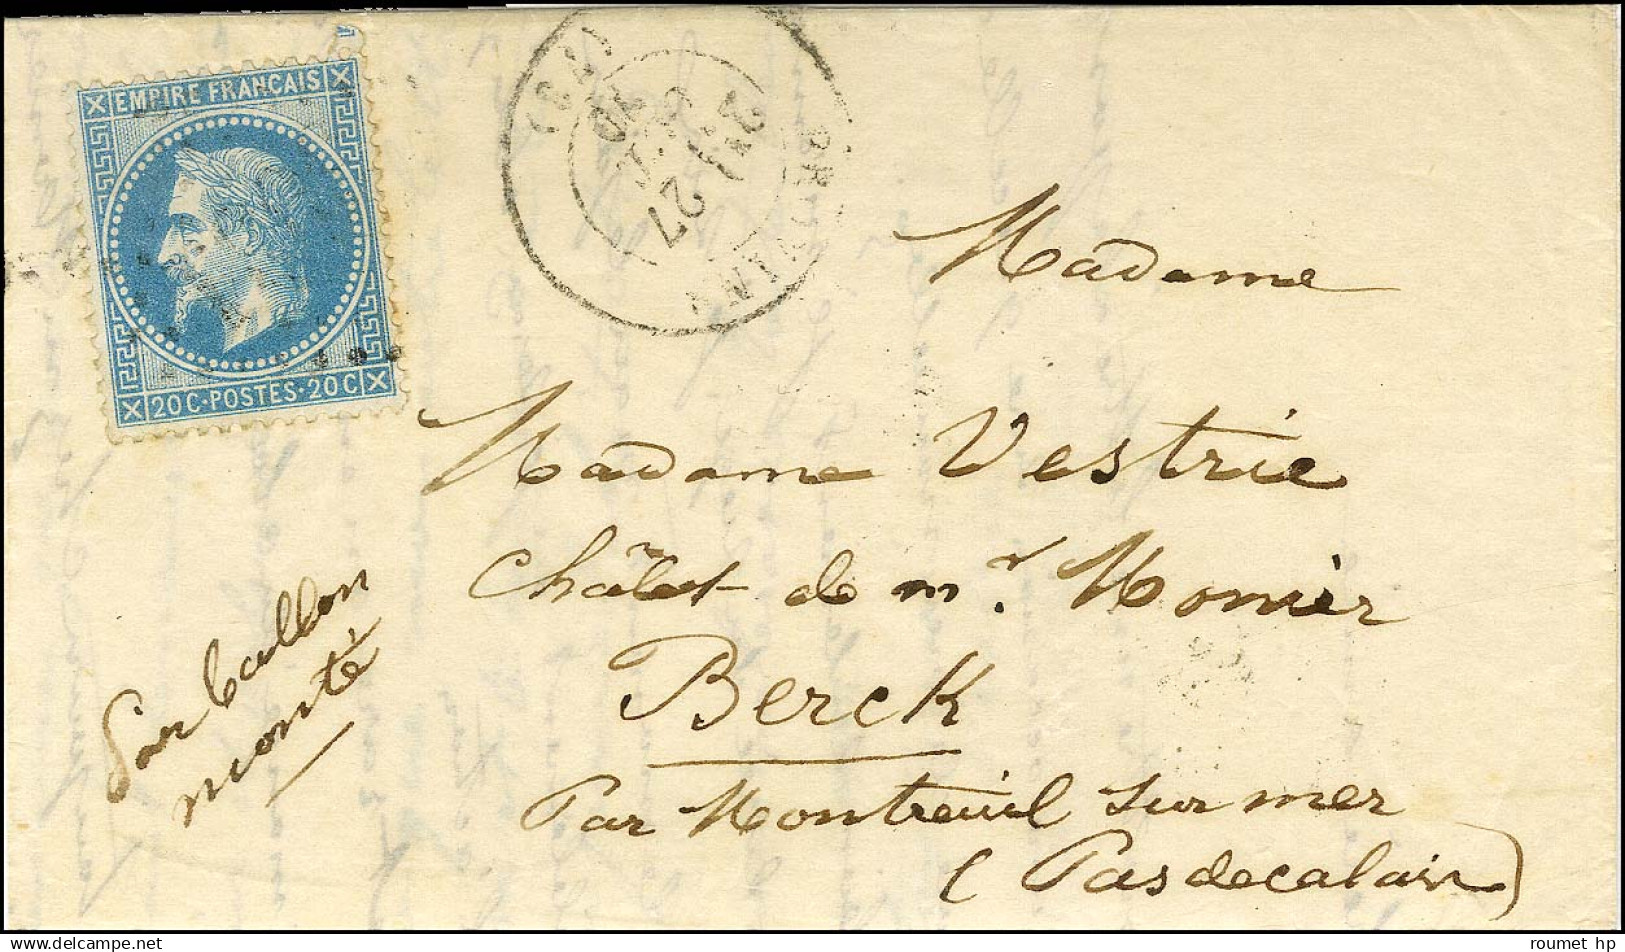 EMPIRE FRANÇAIS
20C·POSTES·20C
3E
27
OCT
70
Madame
Madame Vestrie
Châlet de mr. Monier
Berck
Par Montreuil sur mer
(Pas de calais)
Par Ballon
monté
roumet_hp